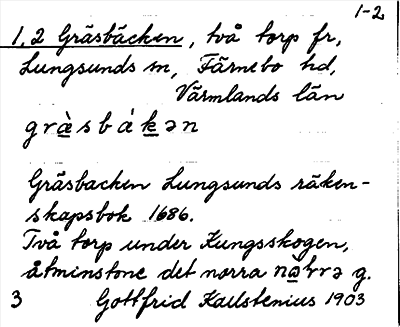 1-2
1,2 Gräsbäcken, två torp fr,
Lungsunds sn, Färnebo hd,
Värmlands län
gràsbákən
Gräsbacken Lungsunds räken-
skapsbok 1686.
Två torp under Kungsskogen,
åtminstone det norra g.
3 Gottfrid Kallstenius 1903